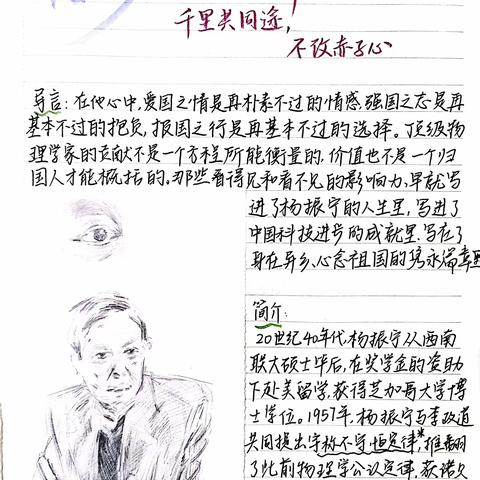 千里共同途,
不改赤子心
导言:在他心中,爱国之情是再朴素不过的情感,强国之志是再
基本不过的抱负,报国之行是再基本不过的选择。顶级物
理学家的贡献不是一个方程所能衡量的,价值也不是一个归
国人才能概括的。那些看得见和看不见的影响力,早就写
进了杨振宁的人生里,写进了
中国科技进步的成就里,写在了
身在异乡、心念祖国的隽永篇章里
简介:
20世纪40年代,杨振宁从西南
联大硕士毕后,在奖学金的资助
下赴美留学,获得芝加哥大学博
士学位。1957年,杨振宁与李政道
共同提出宇称不守恒定律*,推翻
了此前物理学公认定律,获诺